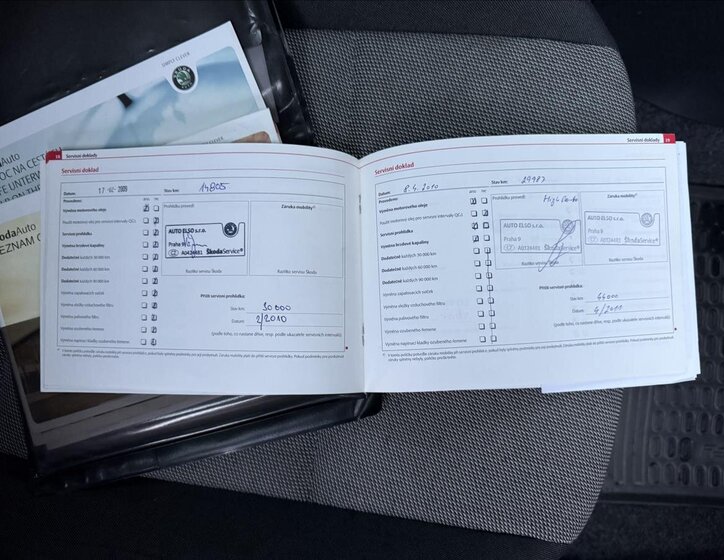 SIMPLY CLEVER
ŠKODA
daAuto
OC NA CEST
FE UNTERW
daAuto
EZNAM
18 Servisní doklady
Servisní doklad
Datum: 17 -02- 2009 Stav km: 14805
Provedeno: ano ne
Výměna motorového oleje
Použit motorový olej pro servisní intervaly QG1
Servisní prohlídka
Výměna brzdové kapaliny
Dodatečné každých 30 000 km
Dodatečné každých 60 000 km
Dodatečné každých 90 000 km
Výměna zapalovacích svíček
Výměna vložky vzduchového filtru
Výměna palivového filtru
Výměna ozubeného řemene
Výměna napínací kladky ozubeného řemene
Prohlídku provedl:
AUTO ELSO s.r.o.
Praha 9
A0424481 ŠkodaService®
Razítko servisu Škoda
Záruka mobility*
Razítko servisu Škoda
Příští servisní prohlídka:
Stav km: 30 000
Datum: 2/2010
(podle toho, co nastane dříve, resp. podle ukazatele servisních intervalů)
Servisní doklady 19
Servisní doklad
Datum: 8.4.2010 Stav km: 29987
Provedeno: ano ne
Výměna motorového oleje
Použit motorový olej pro servisní intervaly QG1
Servisní prohlídka
Výměna brzdové kapaliny
Dodatečné každých 30 000 km
Dodatečné každých 60 000 km
Dodatečné každých 90 000 km
Výměna zapalovacích svíček
Výměna vložky vzduchového filtru
Výměna palivového filtru
Výměna ozubeného řemene
Výměna napínací kladky ozubeného řemene
Prohlídku provedl:
AUTO ELSO s.r.o.
Praha 9
A0424481 ŠkodaService®
Razítko servisu Škoda
Záruka mobility*
AUTO ELSO s.r.o.
Praha 9
A0424481 ŠkodaService®
Razítko servisu Škoda
Příští servisní prohlídka:
Stav km: 44000
Datum: 4/2010
(podle toho, co nastane dříve, resp. podle ukazatele servisních intervalů)